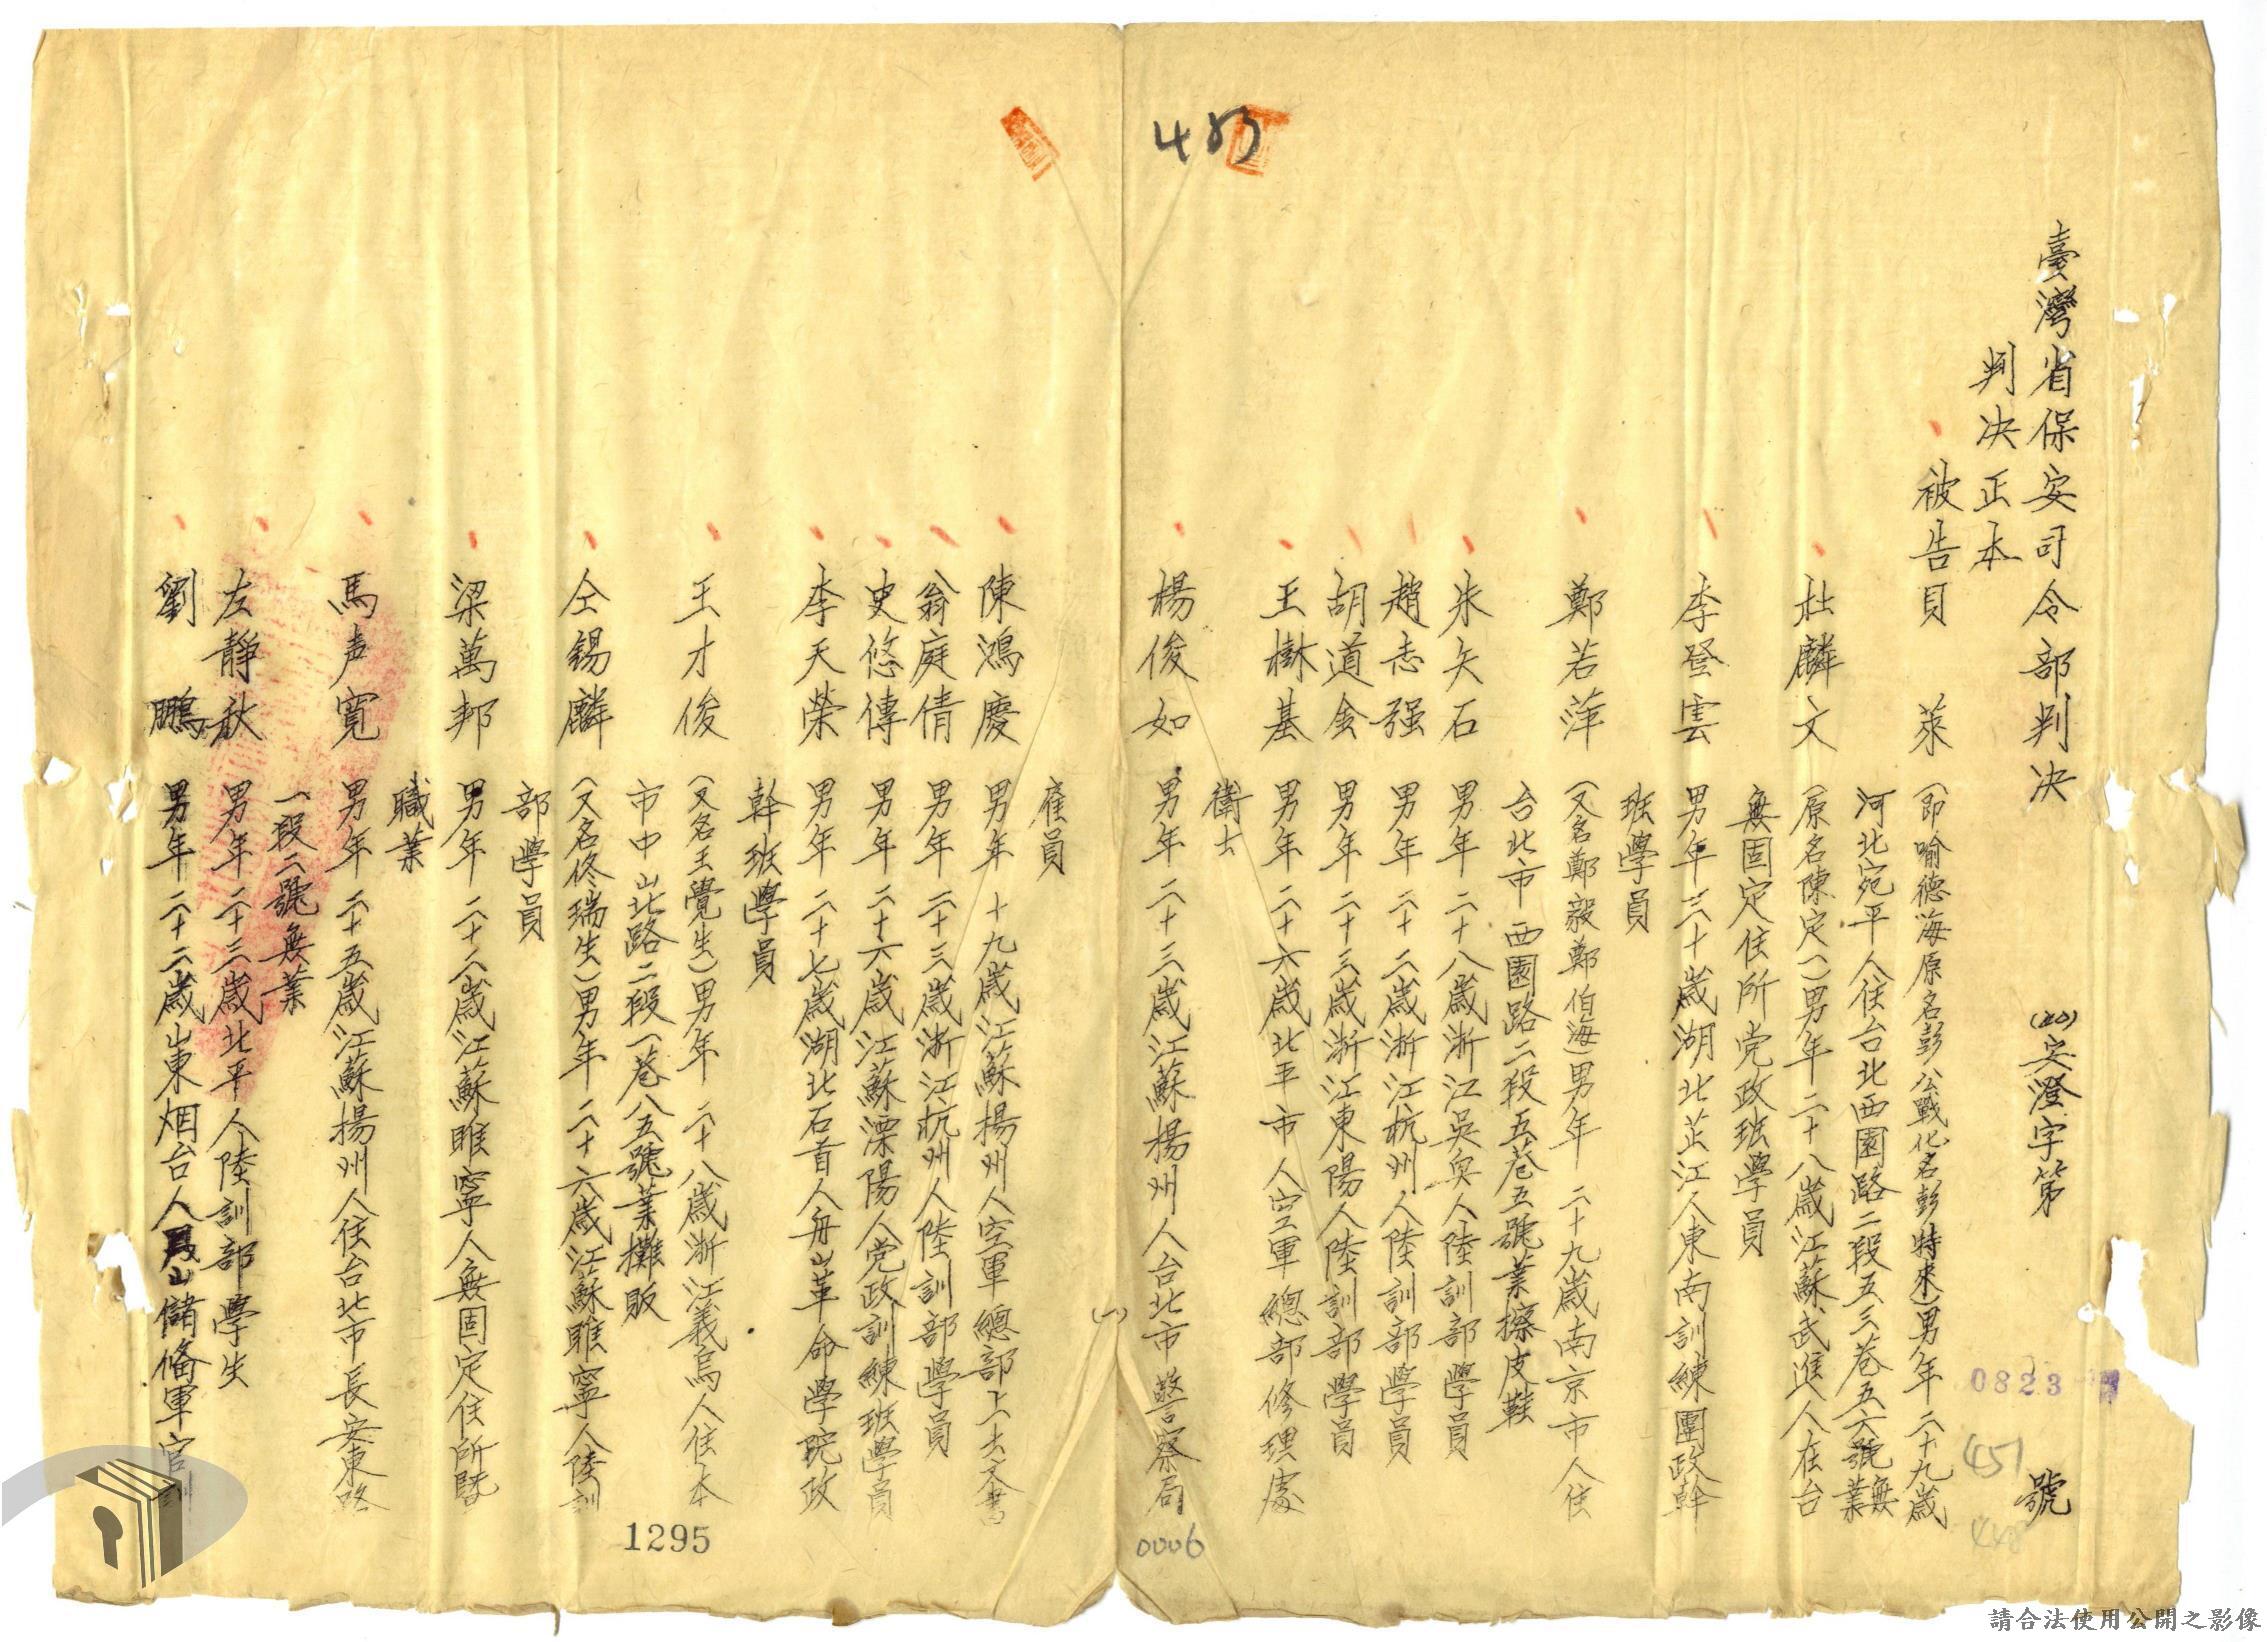 臺灣省保安司令部判決 (40)安澄字第 號
0823
判決正本
451
被告貝 萊 (即喻德海原名彭公戰化名彭特來)男年二十九歲
河北宛平人住台北西園路二段五三巷五六號無業
杜麟文 (原名陳定一)男年二十八歲江蘇武進人在台
無固定住所党政班學員
李登雲 男年三十歲湖北芷江人東南訓練團政幹
班學員
鄭若萍 (又名鄭毅鄭伯海)男年二十九歲南京市人住
台北市西園路二段五巷五號業擦皮鞋
朱矢石 男年二十八歲浙江吳臾人陸訓部學員
趙志强 男年二十二歲浙江杭州人陸訓部學員
胡道金 男年二十三歲浙江東陽人陸訓部學員
王樹基 男年二十六歲北平市人空軍總部修理處
衛士
楊俊如 男年二十三歲江蘇揚州人台北市警察局
403
0006
(一)
雇員
陳鴻慶 男年十九歲江蘇揚州人空軍總部上士文書
翁庭倩 男年二十三歲浙江杭州人陸訓部學員
史悠傳 男年二十六歲江蘇溧陽人党政訓練班學員
李天榮 男年二十七歲湖北石首人舟山革命學院政
幹班學員
王才俊 (又名王覺生)男年二十八歲浙江義烏人住本
市中山北路二段一巷八五號業攤販
仝錫麟 (又名佟瑞生)男年二十六歲江蘇睢寧人陸訓
部學員
梁萬邦 男年二十二歲江蘇睢寧人無固定住所暨
職業
馬声寬 男年二十五歲江蘇揚州人住台北市長安東路
一段二號無業
左靜秋 男年二十三歲北平人陸訓部學生
劉 鵬 男年二十二歲山東烟台人 山儲備軍官訓
1295
請合法使用公開之影像